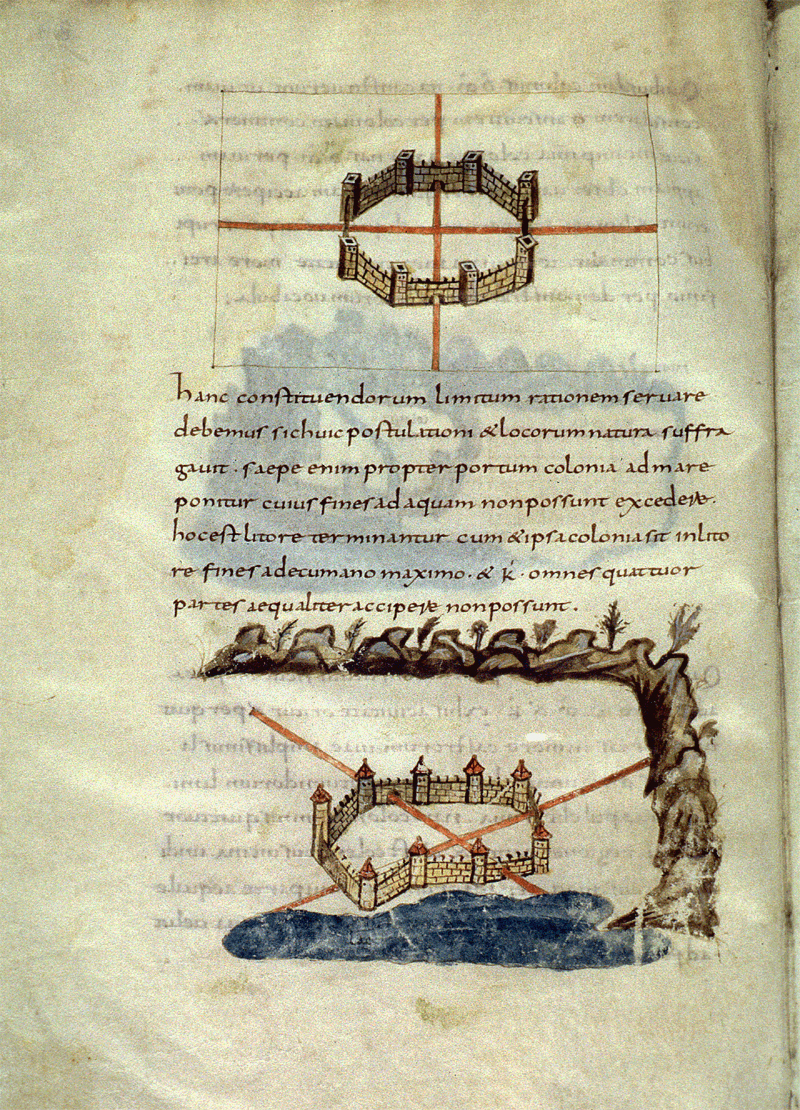 hanc constituendorum limitum rationem seruare
debemus si huic postulationi & locorum natura suffra
gauit · saepe enim propter portum colonia ad mare
ponitur cuius fines ad aquam non possunt excedere ·
hoc est litore terminantur cum & ipsa colonia sit in lito
re fines a decumano maximo · & k · omnes quattuor
partes aequaliter accipere non possunt .